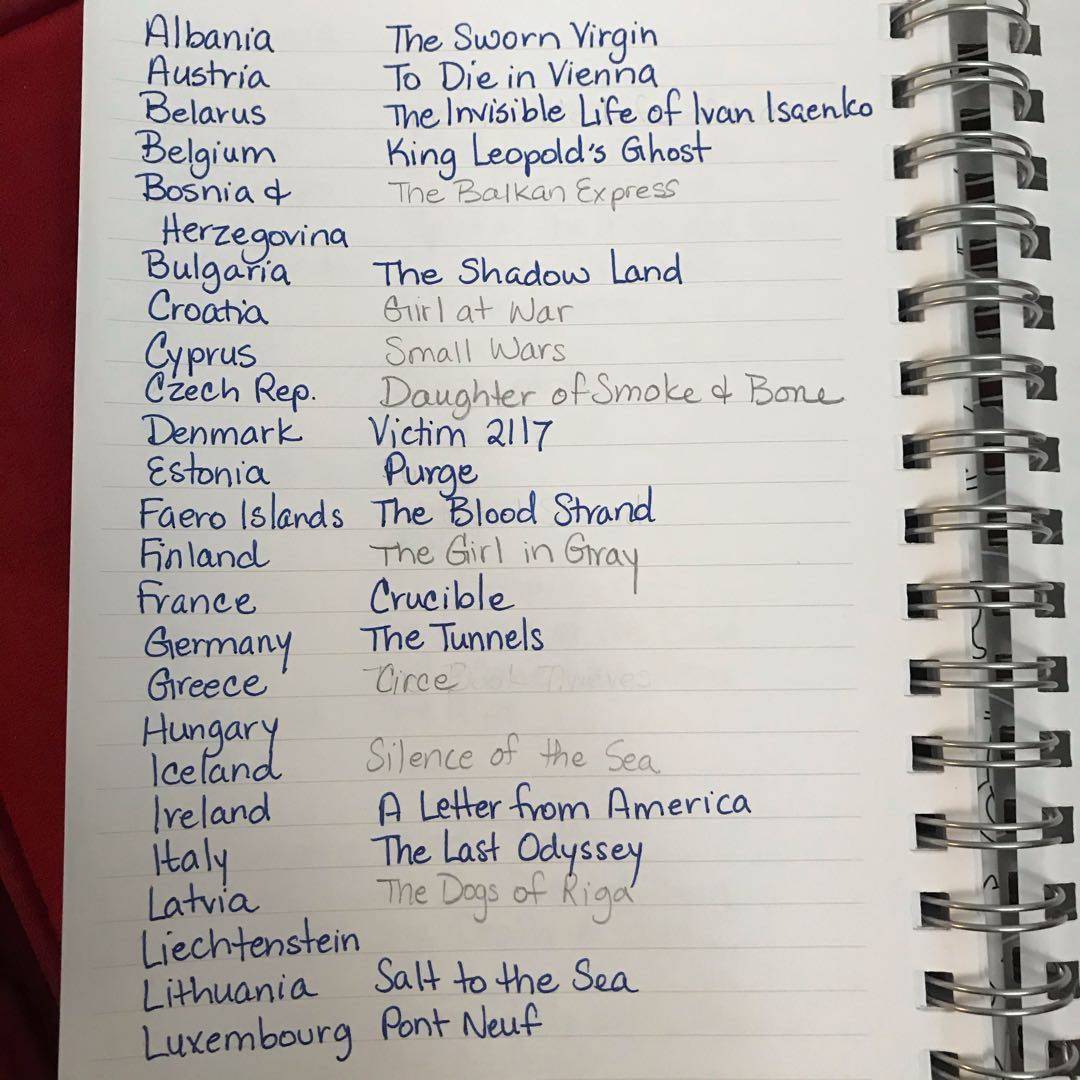 Albania The Sworn Virgin
Austria To Die in Vienna
Belarus The Invisible Life of Ivan Isaenko
Belgium King Leopold's Ghost
Bosnia & The Balkan Express
Herzegovina
Bulgaria The Shadow Land
Croatia Girl at War
Cyprus Small Wars
Czech Rep. Daughter of Smoke & Bone
Denmark Victim 2117
Estonia Purge
Faero Islands The Blood Strand
Finland The Girl in Gray
France Crucible
Germany The Tunnels
Greece Circe
Hungary
Iceland Silence of the Sea
Ireland A Letter from America
Italy The Last Odyssey
Latvia The Dogs of Riga
Liechtenstein
Lithuania Salt to the Sea
Luxembourg Pont Neuf